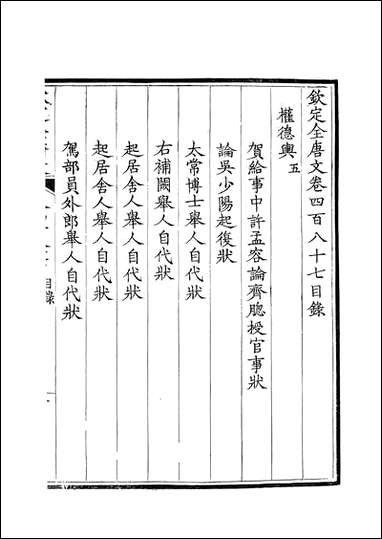 欽定全唐文卷四百八十七目錄
權德輿 五
賀給事中許孟容論齊驄授官事狀
論吳少陽起復狀
太常博士舉人自代狀
右補闕舉人自代狀
起居舍人舉人自代狀
起居舍人舉人自代狀
駕部員外郎舉人自代狀
目錄